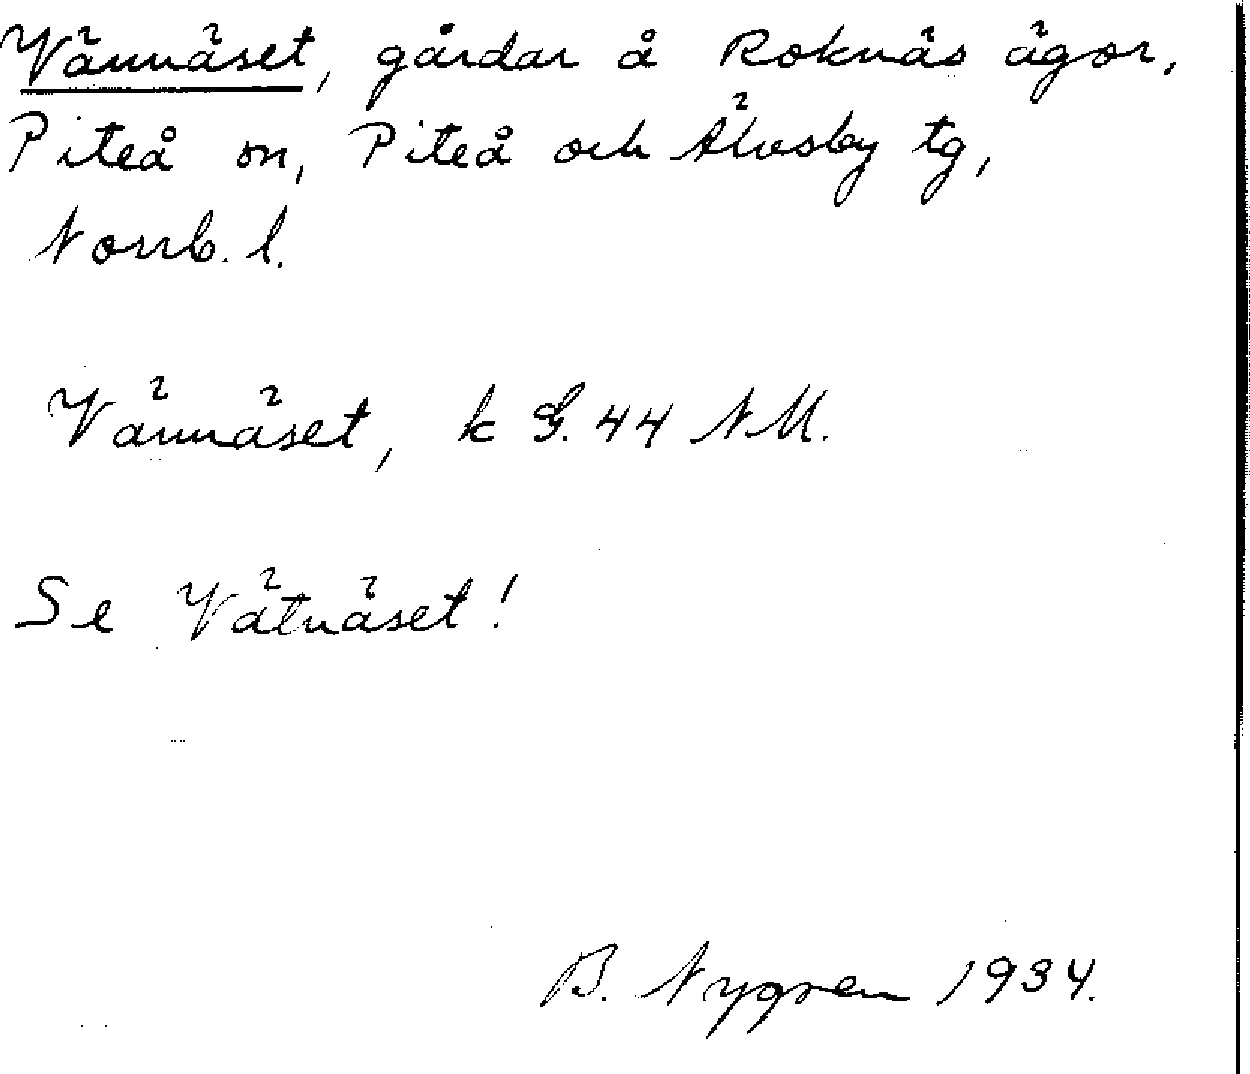 Vännäset, gårdar å Roknäs ägor,
Piteå sn, Piteå och Älvsby tg,
Norrb. l.
Vännäset, k G. 44 NM.
Se Vätnäset!
B. Nygren 1934.